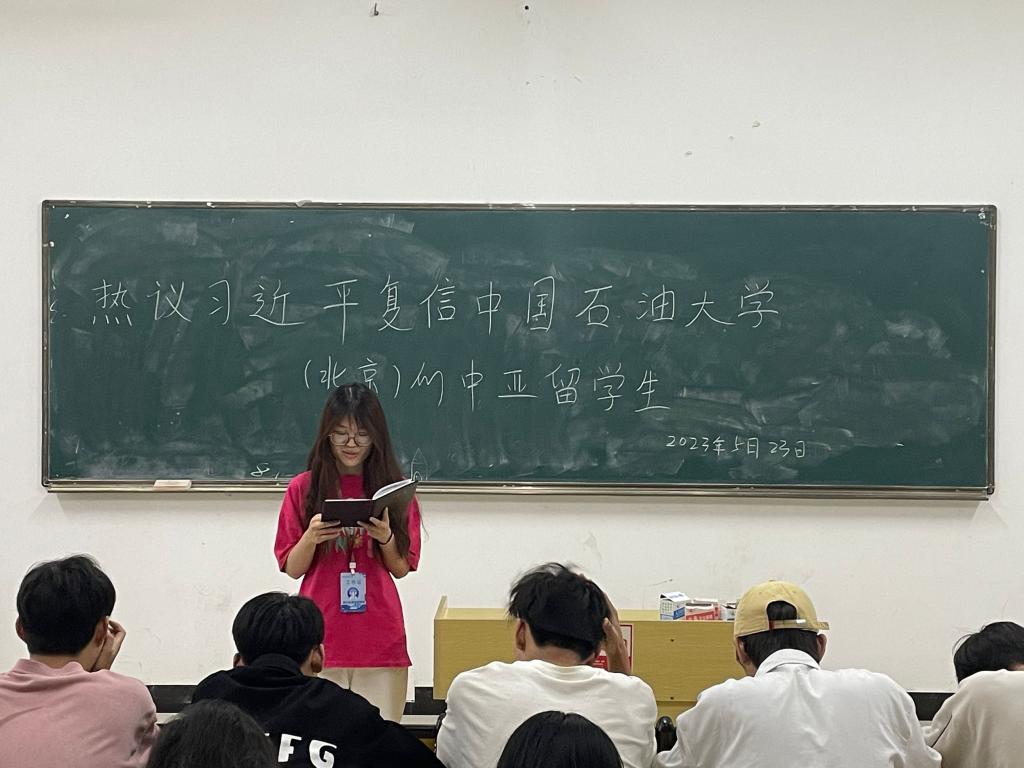 热议习近平复信中国石油大学
(北京)的中亚留学生
2023年5月23日
工作证
FG